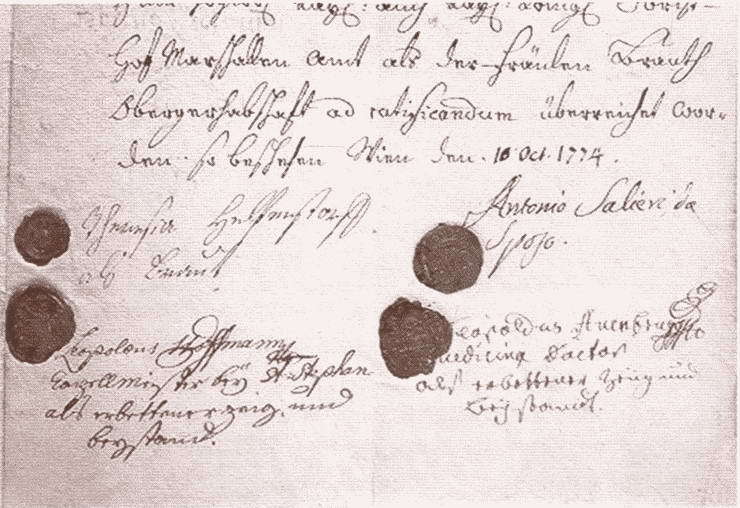 Hof Marschallen Amt als der Fräulen Brauth
Obergerhabschafft ad ratificandum überreichet wor-
den. so beschehen Wien den. 10 Oct. 1774.
Theresia Helfenstorff.
als Brauth
Antonio Salieri da
Sposo.
Leopoldus Hoffmann
Capellmeister bey St. Stephan
als erbettener zeig. und
beystand.
Leopoldus Auenbrugg
Medicinæ Doctor
als erbettener Zeug und
beystandt.